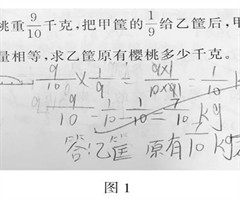 桃重9/10千克,把甲筐的1/9给乙筐后,甲
量相等,求乙筐原有樱桃多少千克。
9/10 × 1/9 = 9×1/10×9 = 1/10
9/10 - 1/10 - 1/10 = 7/10 kg
答乙筐 原有7/10 kg
图 1